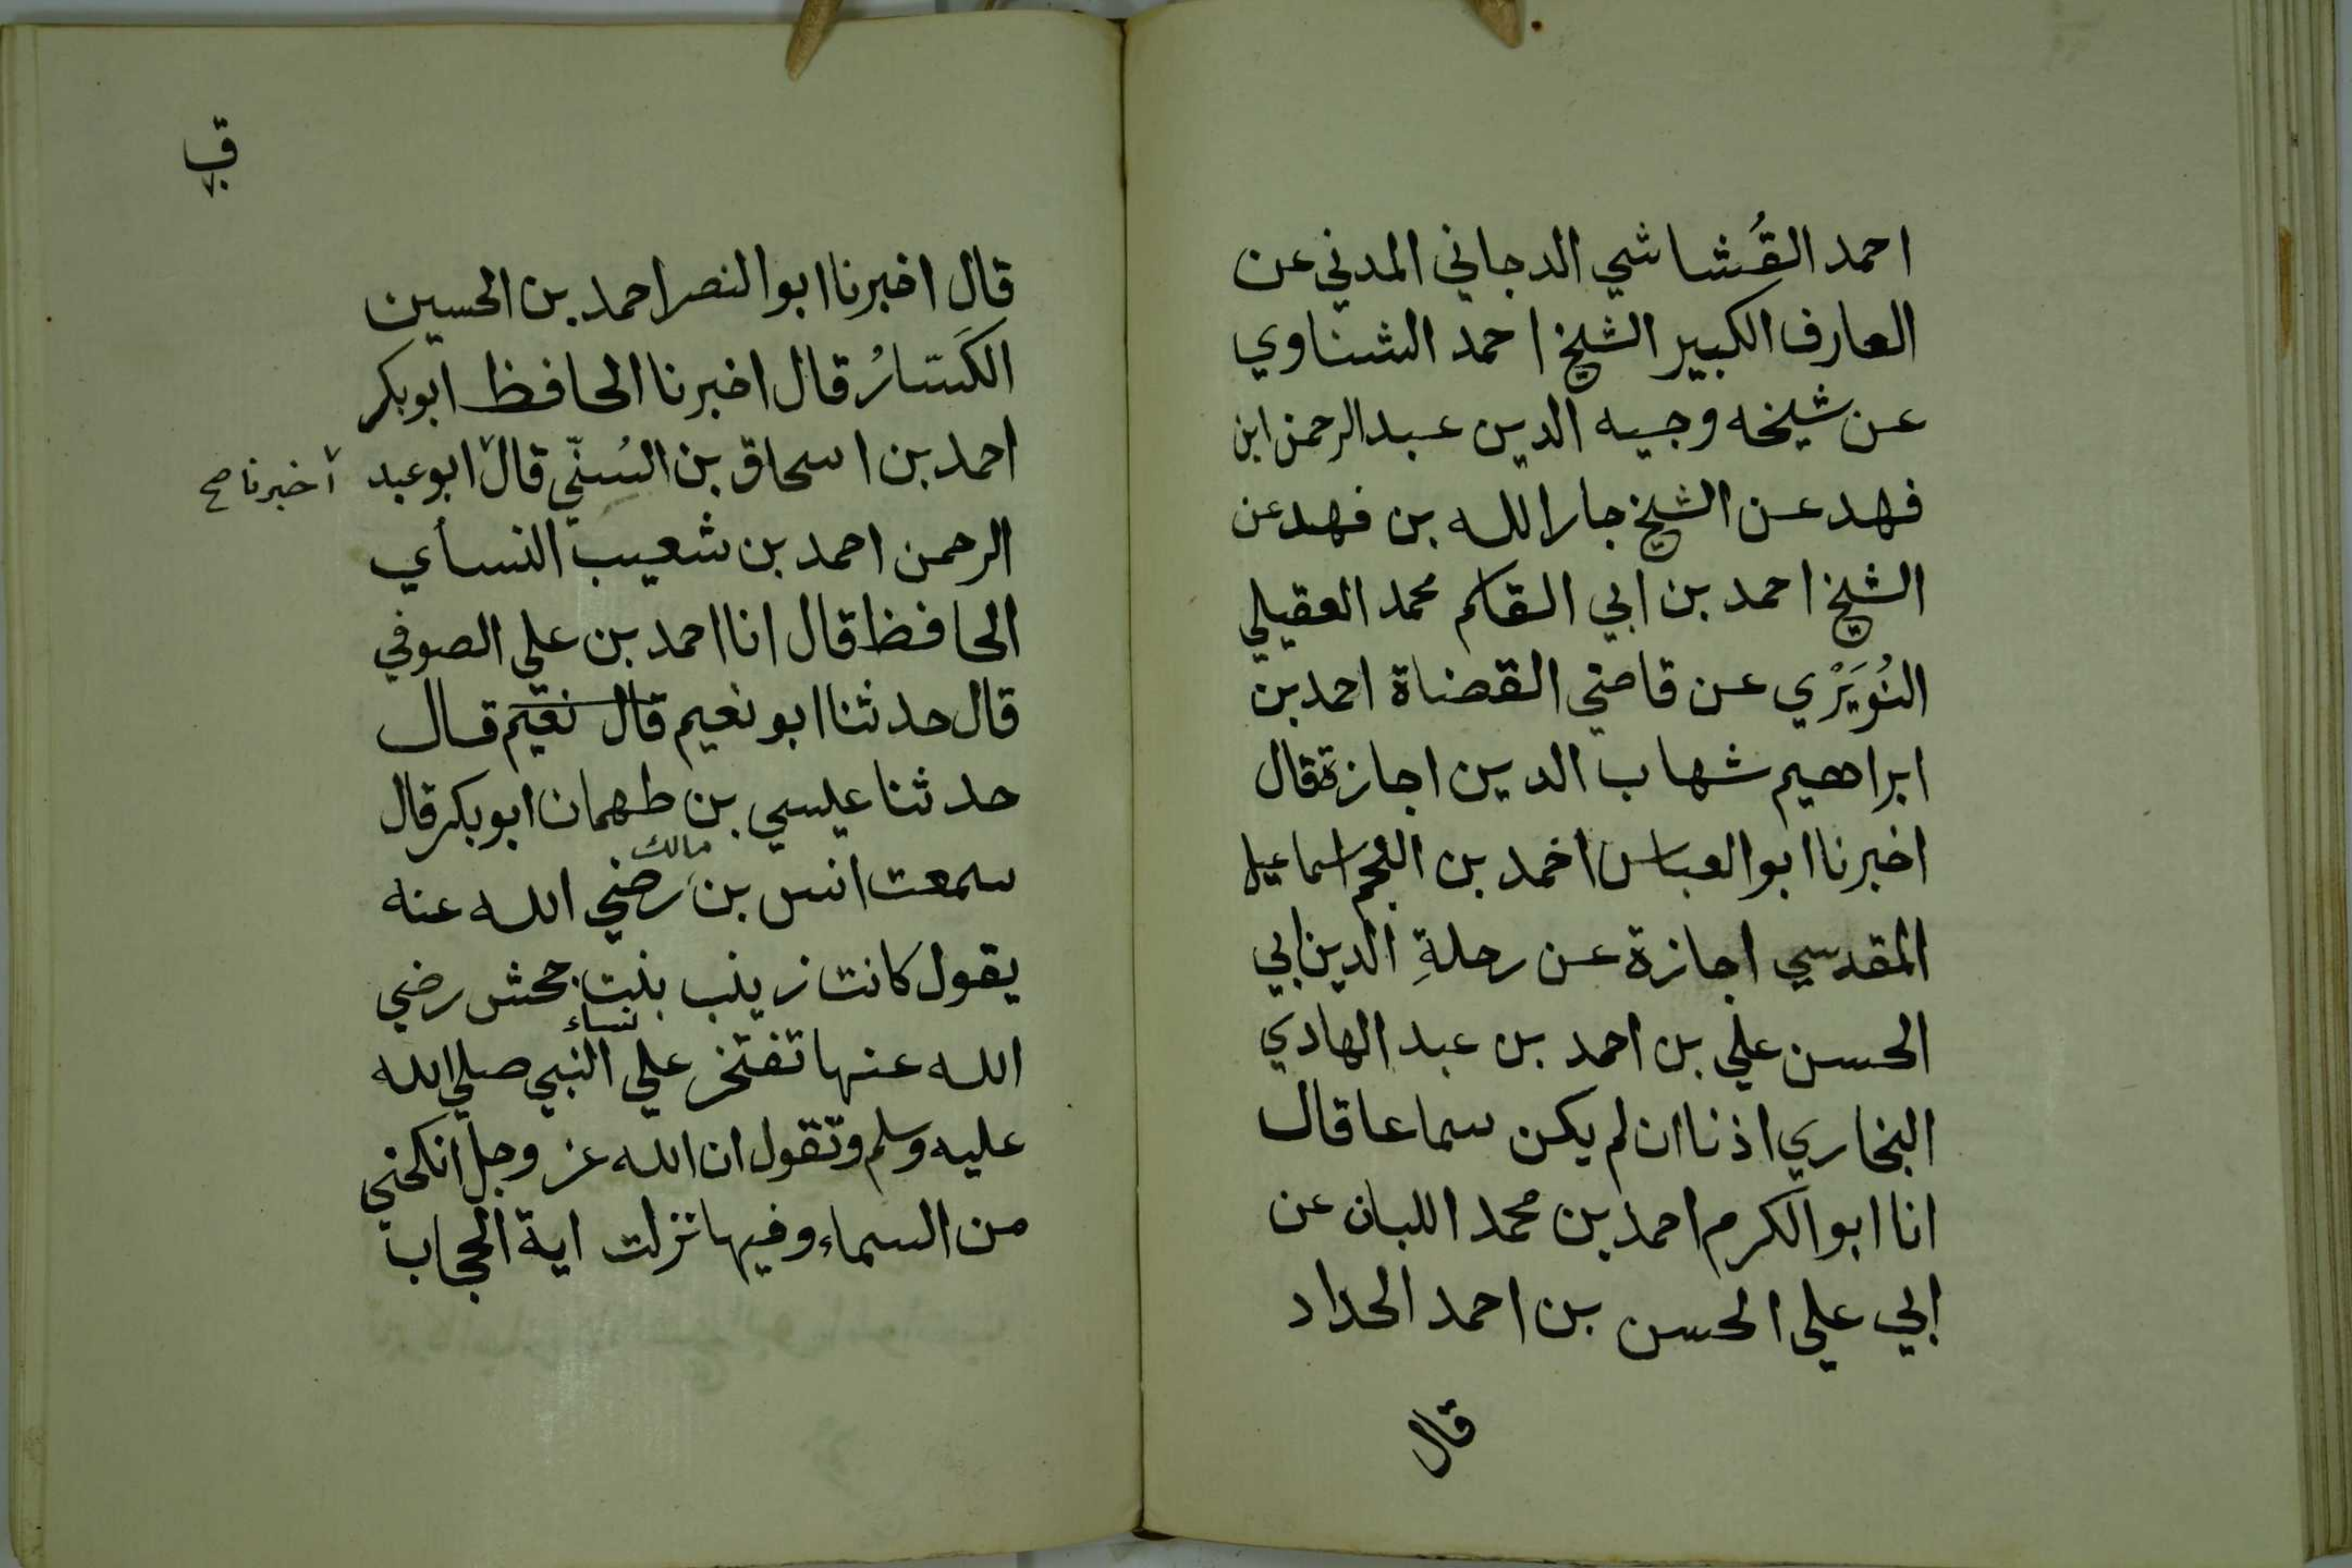 احمد القُشاشي الدجاني المدني عن
العارف الكبير الشيخ احمد الشناوي
عن شيخه وجيه الدين عبد الرحمن ابن
فهد عن الشيخ جار الله بن فهد عن
الشيخ احمد بن ابي القاسم محمد العقيلي
النُوَيْرْي عن قاضي القضاة احمد بن
ابراهيم شهاب الدين اجازة قال
اخبرنا ابو العباس احمد بن النجم اسماعيل
المقدسي اجازة عن رحلةِ الدين ابي
الحسن علي بن احمد بن عبد الهادي
البخاري اذنا ان لم يكن سماعا قال
انا ابو الكرم احمد بن محمد اللبان عن
ابي علي الحسن بن احمد الحداد
قال
قال اخبرنا ابو النصر احمد بن الحسين
الكَسَّارُ قال اخبرنا الحافظ ابوبكر
احمد بن اسحاق بن السُنّي قال ابو عبد
اخبرنا صح
الرحمن احمد بن شعيب النسأي
الحافظ قال انا احمد بن علي الصوفي
قال حدثنا ابو نعيم قال نعيم قال
حدثنا عيسي بن طهمان ابو بكر قال
سمعت انس بن مالك رضي الله عنه
يقول كانت زينب بنت جحش رضي
الله عنها تفتخر علي نساء النبي صلي الله
عليه وسلم وتقول ان الله عز وجل انكحني
من السماء وفيها نزلت اية الحجاب